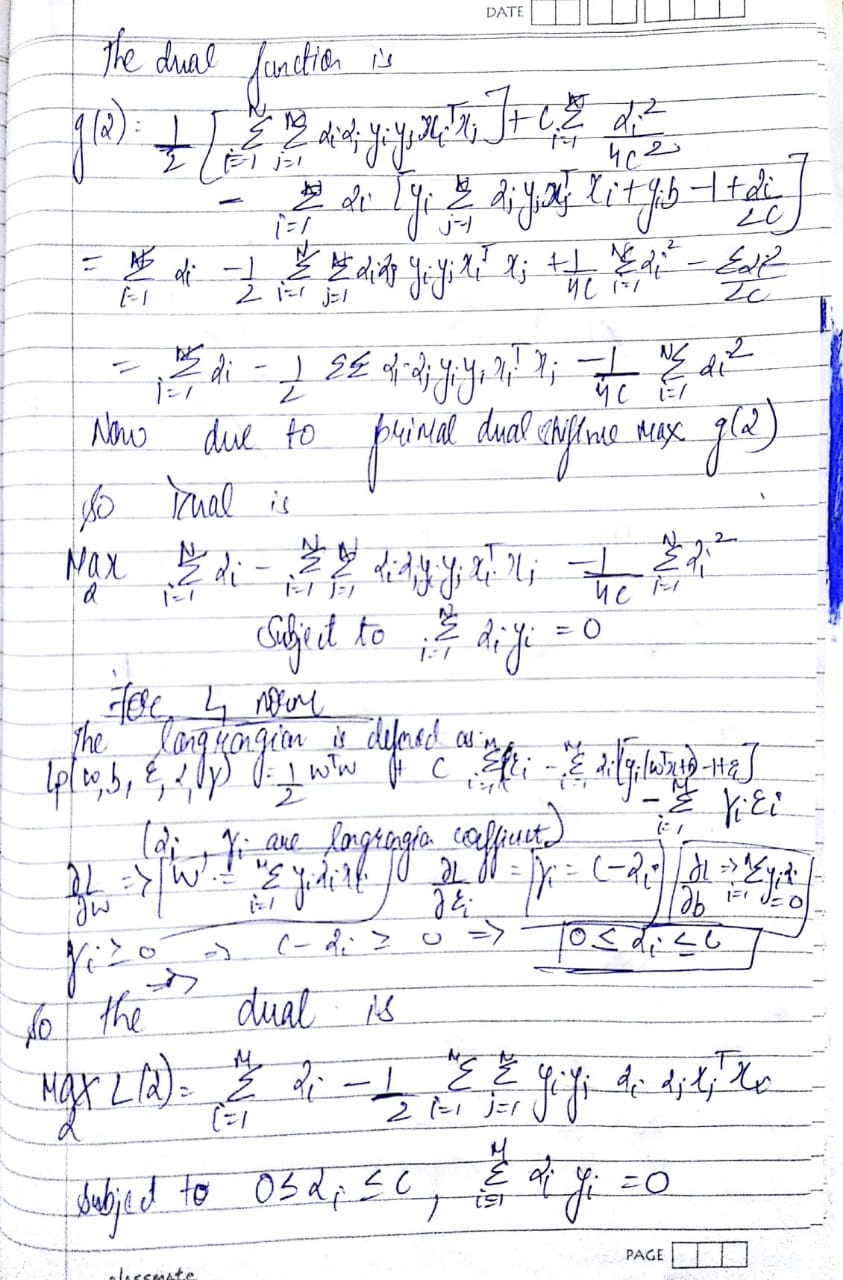 DATE
The dual function is
g(α) = 1/2 [ Σ_{i=1}^{N} Σ_{j=1}^{N} αi αj yi yj xi^T xj ] + C Σ_{i=1}^{N} αi^2/4C^2
- Σ_{i=1}^{N} αi [ yi Σ_{j=1}^{N} αj yj xj^T xi + yi b - 1 + αi/2C ]
= Σ_{i=1}^{N} αi - 1/2 Σ_{i=1}^{N} Σ_{j=1}^{N} αi αj yi yj xi^T xj + 1/4C Σ_{i=1}^{N} αi^2 - Σαi^2/2C
= Σ_{i=1}^{N} αi - 1/2 ΣΣ αi αj yi yj xi^T xj - 1/4C Σ_{i=1}^{N} αi^2
Now due to primal dual max g(α)
So Dual is
Max_α Σ_{i=1}^{N} αi - Σ_{i=1}^{N} Σ_{j=1}^{N} αi αj yi yj xi^T xj - 1/4C Σ_{i=1}^{N} αi^2
Subject to Σ_{i=1}^{N} αi yi = 0
For L1 norm
The langrangian is defined as
Lp(w, b, ξ, α, γ) = 1/2 w^T w + C Σ_{i=1}^{M} ξi - Σ_{i=1}^{M} αi [yi (w^T xi + b) - 1 + ξi]
- Σ_{i=1}^{M} γi ξi
(αi, γi are langrangia coefficients)
∂L/∂w => w = Σ_{i=1}^{M} yi αi xi ∂L/∂ξi = γi = C - αi ∂L/∂b => Σ_{i=1}^{M} yi αi = 0
γi ≥ 0 => C - αi ≥ 0 => 0 ≤ αi ≤ C
=>
So the dual is
Max_α L(α) = Σ_{i=1}^{M} αi - 1/2 Σ_{i=1}^{M} Σ_{j=1}^{M} yi yj αi αj xj^T xi
subject to 0 ≤ αi ≤ C, Σ_{i=1}^{M} αi yi = 0
PAGE
classmate